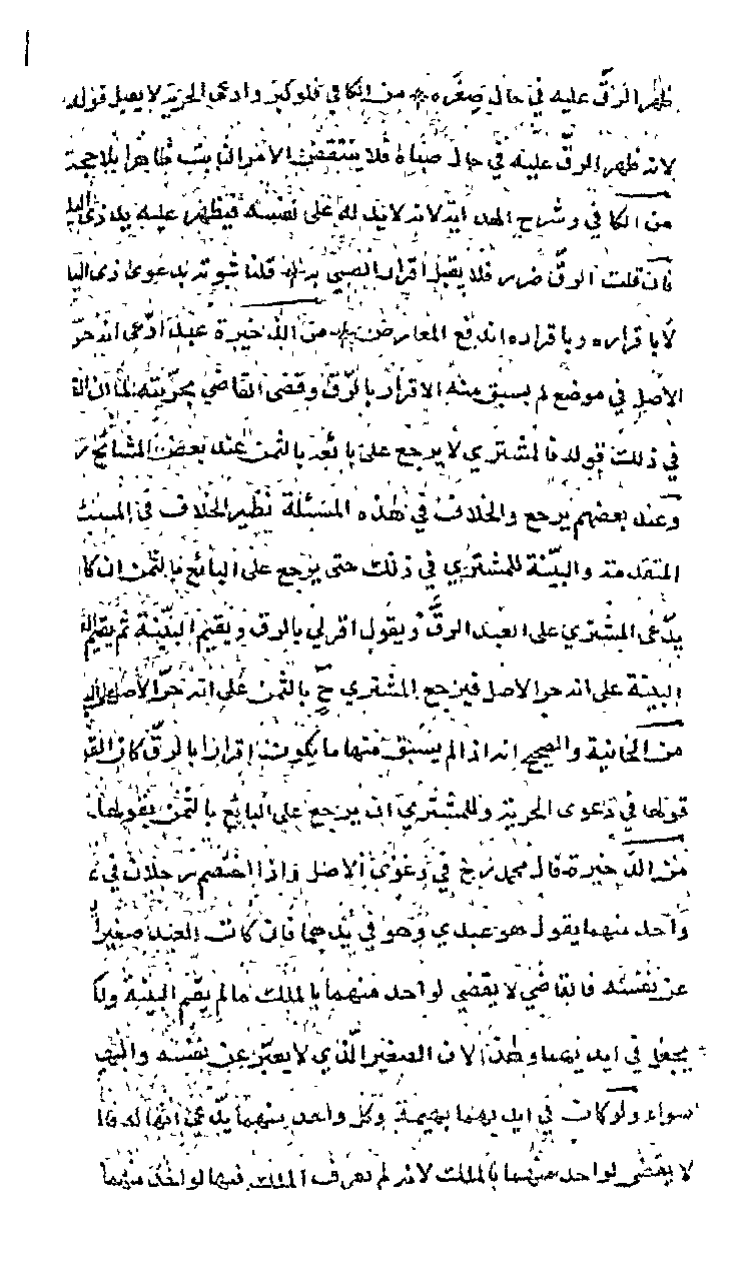 ظهر الرق عليه في حال صغره من الكافي فلو كبر وادعى الحرية لا يقبل قوله
لانه ظهر الرق عليه في حال صباه فلا ينتقض الامر الثابت ظاهرا بلا حجة
من الكافي وشرح الهداية لانه لا يد له على نفسه فيظهر عليه يد ذي اليد
فان قلت الرق ضرر فلا يقبل اقرار الصبي به قلنا ثبوته بدعوى ذي اليد
لا باقراره وباقراره اندفع المعارض من الذخيرة عبد ادعى انه حر
الاصل في موضع لم يسبق منه الاقرار بالرق وقضى القاضي بحريته لما ان
في ذلك قوله فالمشتري لا يرجع على بائعه بالثمن عند بعض المشائخ
وعند بعضهم يرجع والخلاف في هذه المسئلة نظير الخلاف في
المتقدمة والبينة للمشتري في ذلك حتى يرجع على البائع بالثمن ان
يدعى المشتري على العبد الرق ويقول اقر لي بالرق ويقيم البينة ثم يقيم
البينة على انه حر الاصل فيرجع المشتري ح بالثمن على انه حر الاصل
من الخانية والصحيح انه اذا لم يسبق منها ما يكون اقرارا بالرق كان
قولها في دعوى الحرية وللمشتري ان يرجع على البائع بالثمن بقولها
من الذخيرة قال محمد رح في دعوى الاصل واذا اختصم رجلان في
واحد منهما يقول هو عبدي وهو في يدهما فان كان العبد صغيرا
عن نفسه فالقاضي لا يقضي لواحد منهما بالملك ما لم يقم البينة
يجعل في ايديهما وهذا لان الصغير الذي لا يعبر عن نفسه
سواء ولو كان في ايديهما بهيمة وكل واحد منهما يدعى انها له
لا يقضى لواحد منهما بالملك لانه لم نعرف الملك فيها لواحد منهما